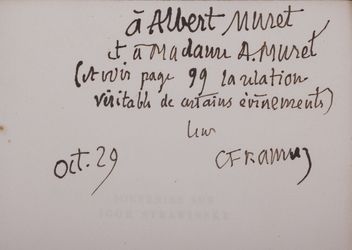 à Albert Muret
et à Madame A. Muret
(et voir page 99 la relation
véritable de certains événements)
leur
Oct. 29 CF Ramuz
SOUVENIRS SUR
IGOR STRAWINSKY